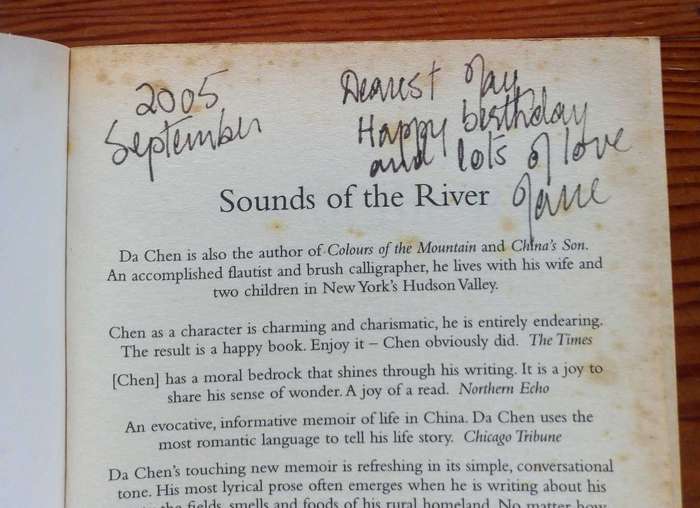 2005
September
Dearest Jay
Happy birthday
and lots of love
Jane
Sounds of the River
Da Chen is also the author of Colours of the Mountain and China's Son.
An accomplished flautist and brush calligrapher, he lives with his wife and
two children in New York's Hudson Valley.
Chen as a character is charming and charismatic, he is entirely endearing.
The result is a happy book. Enjoy it – Chen obviously did. The Times
[Chen] has a moral bedrock that shines through his writing. It is a joy to
share his sense of wonder. A joy of a read. Northern Echo
An evocative, informative memoir of life in China. Da Chen uses the
most romantic language to tell his life story. Chicago Tribune
Da Chen's touching new memoir is refreshing in its simple, conversational
tone. His most lyrical prose often emerges when he is writing about his
the fields, smells and foods of his rural homeland. No matter how